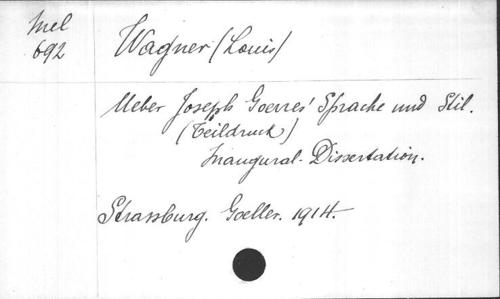 Mel
692
Wagner (Louis)
Ueber Joseph Goerres' Sprache und Stil.
(Teildruck)
Inaugural-Dissertation.
Strassburg. Goeller. 1914.